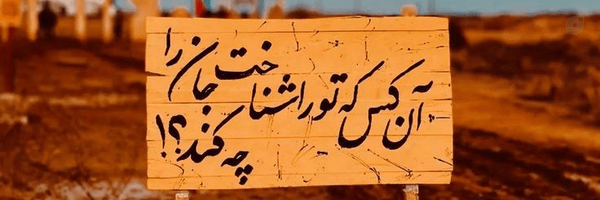 آن کس که تو را شناخت جان را
چه کند؟!